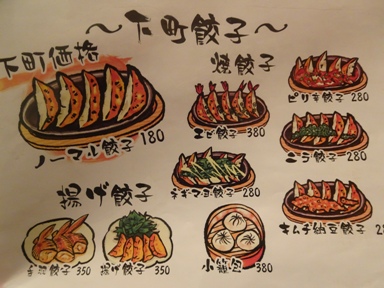 ～下町餃子～
下町価格
ノーマル餃子 180
焼餃子
エビ餃子 380
ピリ辛餃子 280
ニラ餃子 280
ネギマヨ餃子 280
キムチ納豆餃子 2
揚げ餃子
手羽餃子 350
揚げ餃子 350
小籠包 380